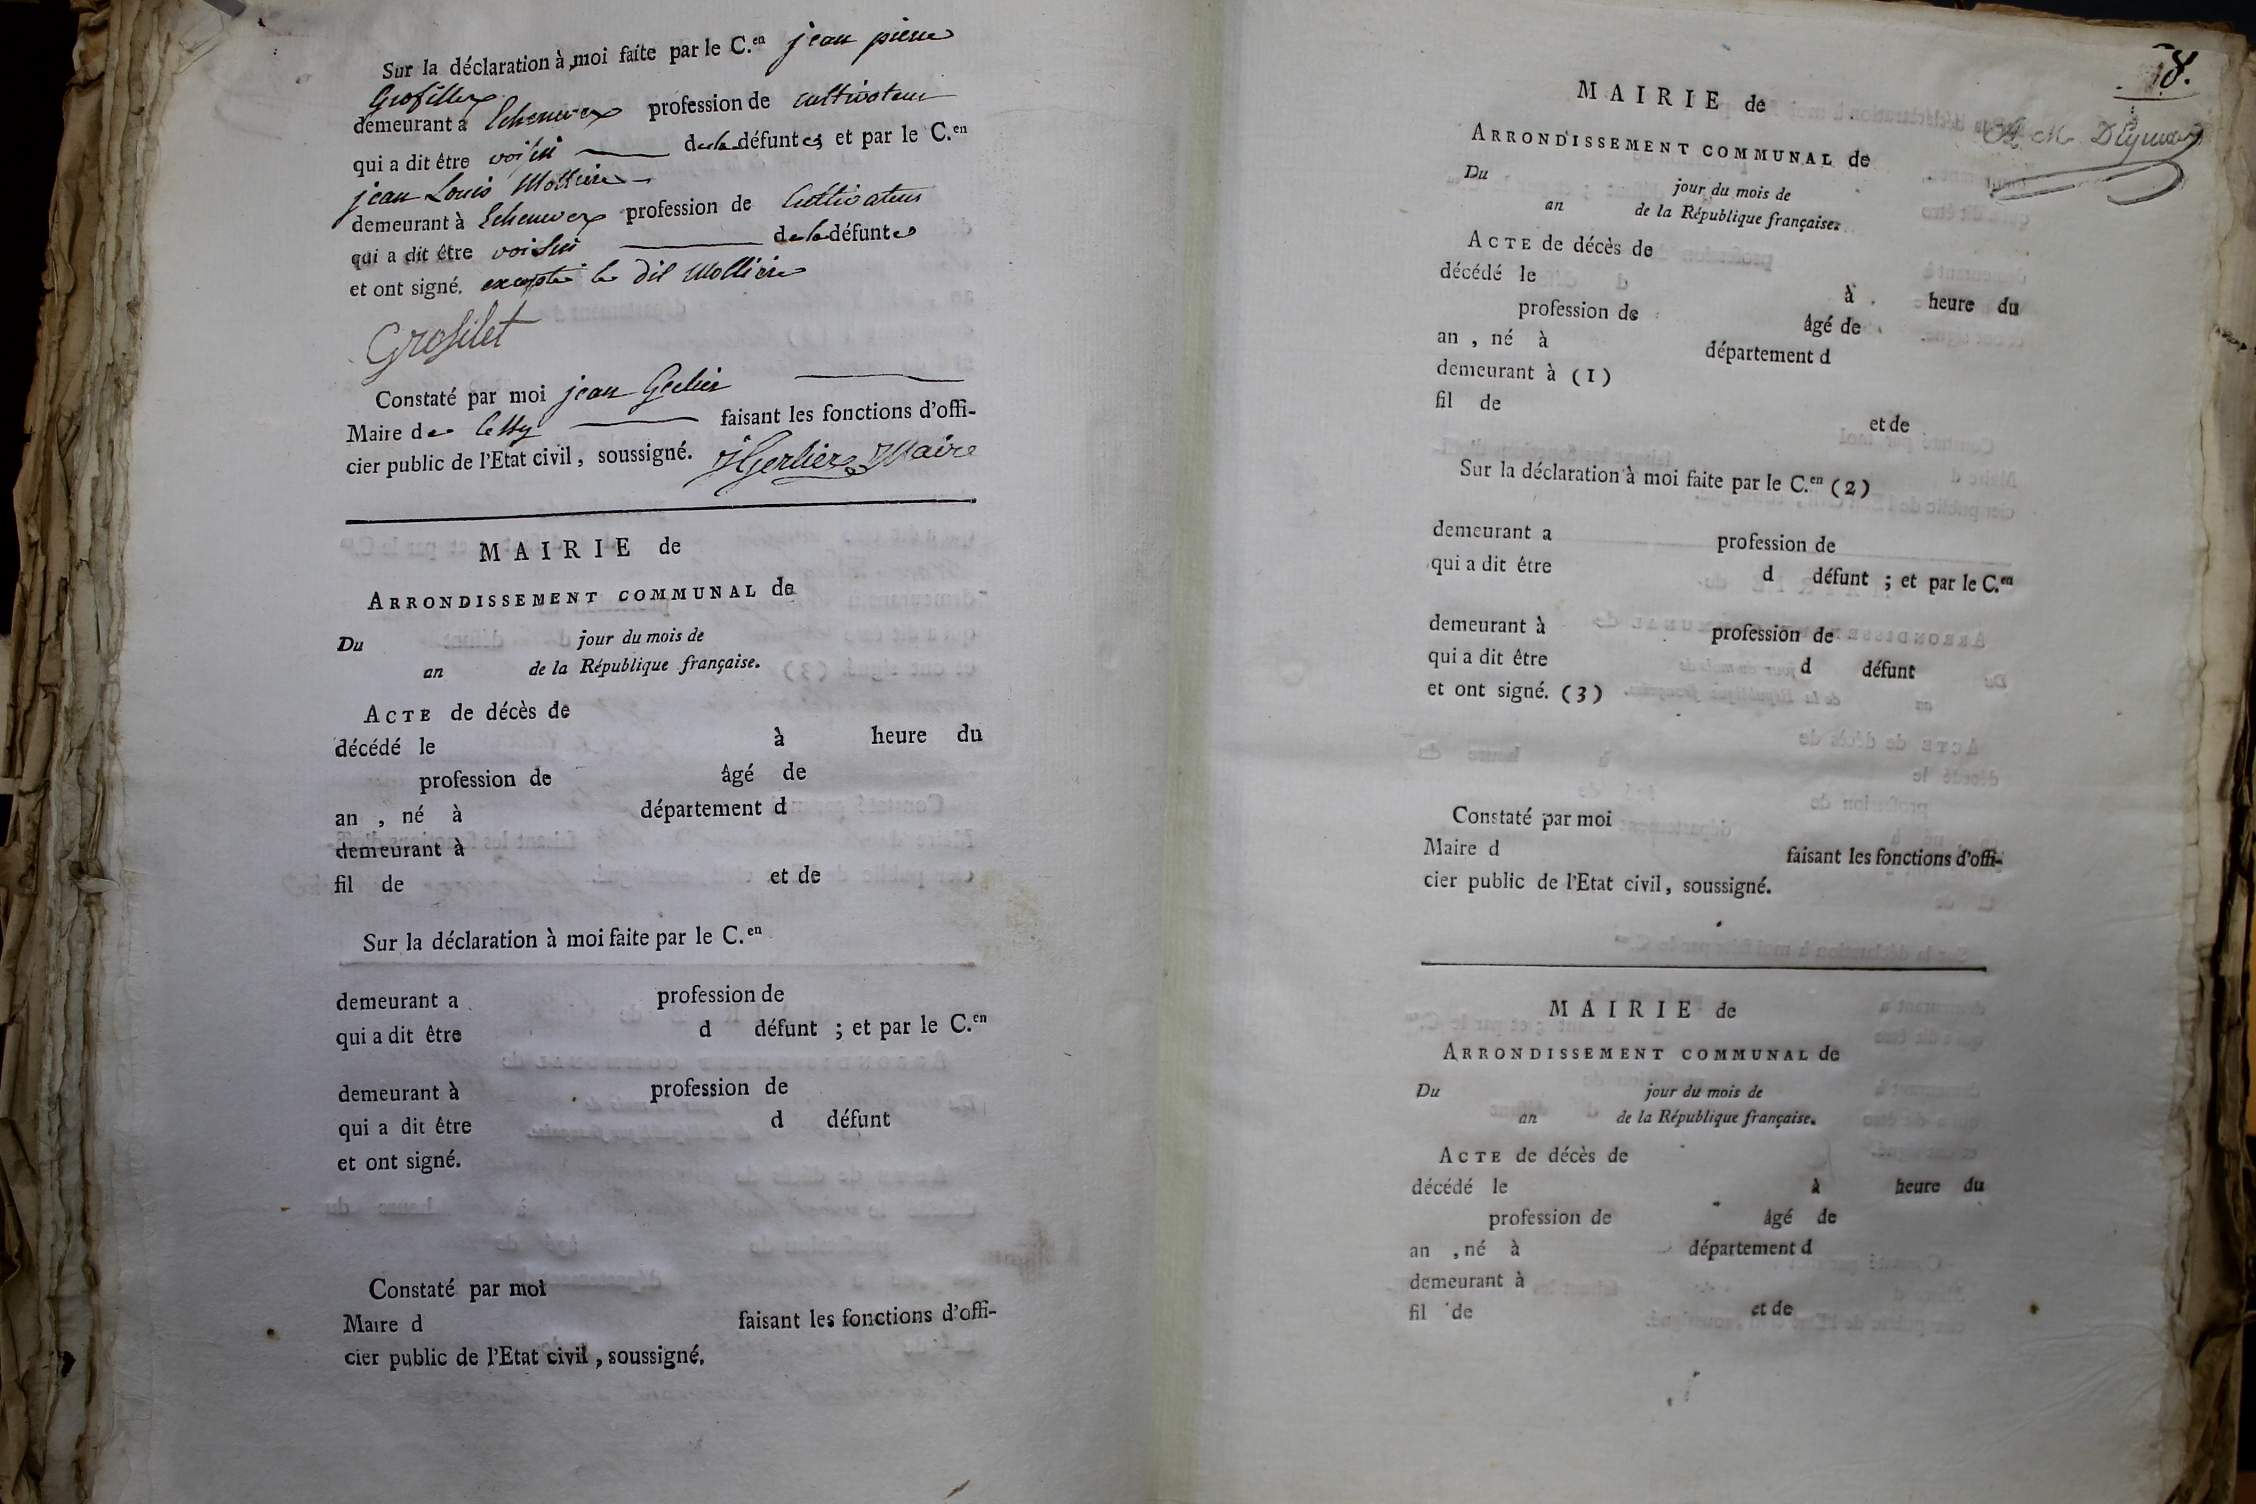 Sur la déclaration à moi faite par le C.en jean pierre
Grofillex
demeurant à Echenevex profession de cultivateur
qui a dit être voisin de la défunte; et par le C.en
jean Louis Mollière
demeurant à Echenevex profession de Cultivateur
qui a dit être voisin de la défunte
et ont signé. excepté le dit Mollière
Grofilet
Constaté par moi jean Gerlier
Maire de Cessy faisant les fonctions d'offi-
cier public de l'Etat civil, soussigné. JGerlier Maire
MAIRIE de
ARRONDISSEMENT COMMUNAL de
Du jour du mois de
an de la République française.
ACTE de décès de
décédé le à heure du
profession de âgé de
an , né à département d
demeurant à
fil de et de
Sur la déclaration à moi faite par le C.en
demeurant a profession de
qui a dit être d défunt ; et par le C.en
demeurant à profession de
qui a dit être d défunt
et ont signé.
Constaté par moi
Maire d faisant les fonctions d'offi-
cier public de l'Etat civil, soussigné.
8.
MAIRIE de
ARRONDISSEMENT COMMUNAL de
Du jour du mois de
an de la République française.
ACTE de décès de
décédé le à heure du
profession de âgé de
an , né à département d
demeurant à (1)
fil de et de
Sur la déclaration à moi faite par le C.en (2)
demeurant a profession de
qui a dit être d défunt ; et par le C.en
demeurant à profession de
qui a dit être d défunt
et ont signé. (3)
Constaté par moi
Maire d faisant les fonctions d'offi-
cier public de l'Etat civil, soussigné.
MAIRIE de
ARRONDISSEMENT COMMUNAL de
Du jour du mois de
an de la République française.
ACTE de décès de
décédé le à heure du
profession de âgé de
an , né à département d
demeurant à
fil de et de